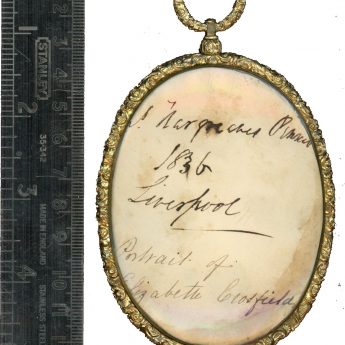 Hargreaves Pinxit
1836
Liverpool
Portrait of
Elizabeth Crosfield
STANLEY
35-342
MADE IN ENGLAND
STAINLESS STEEL
1
2
3
4
5
6
7
8
9
10
11
1
2
3
4